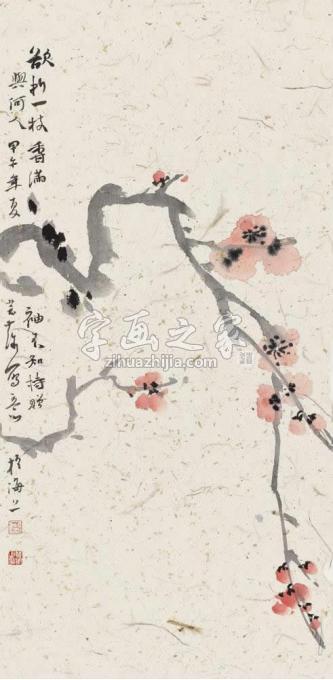 欲折一枝香满
袖不知持赠
與何人 甲午年夏
写意
於海上
字画之家
zihuazhijia.com